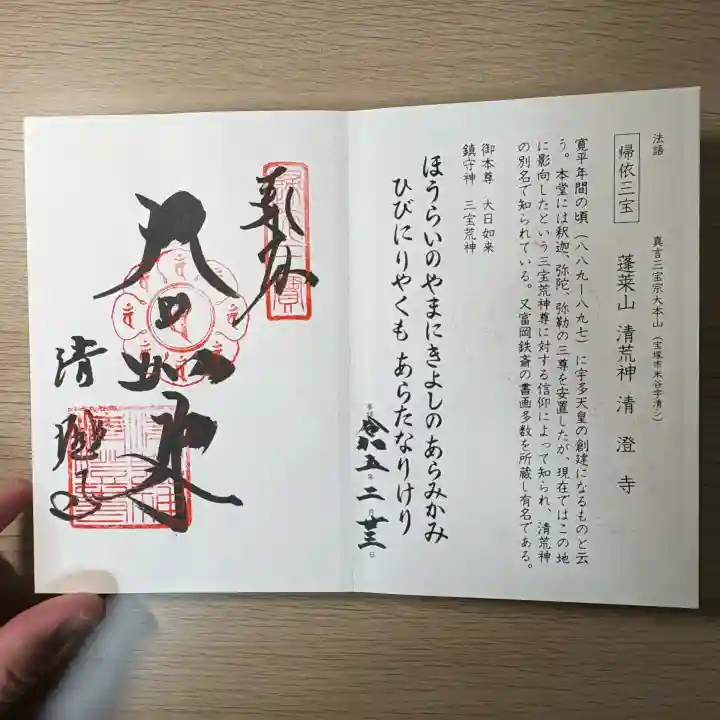 法語
帰依三宝
真言三宝宗大本山（宝塚市米谷字清シ）
蓬莱山 清荒神 清澄寺
寛平年間の頃（八八九ー八九七）に宇多天皇の創建になるものと云
う。本堂には釈迦、弥陀、弥勒の三尊を安置したが、現在ではこの地
に影向したという三宝荒神尊に対する信仰によって知られ、清荒神
の別名で知られている。又富岡鉄斎の書画多数を所蔵し有名である。
御本尊 大日如来
鎮守神 三宝荒神
ほうらいのやまにきよしのあらみかみ
ひびにりやくも あらたなりけり
令和五年二月廿三日
奉拝
大日如来
清澄寺